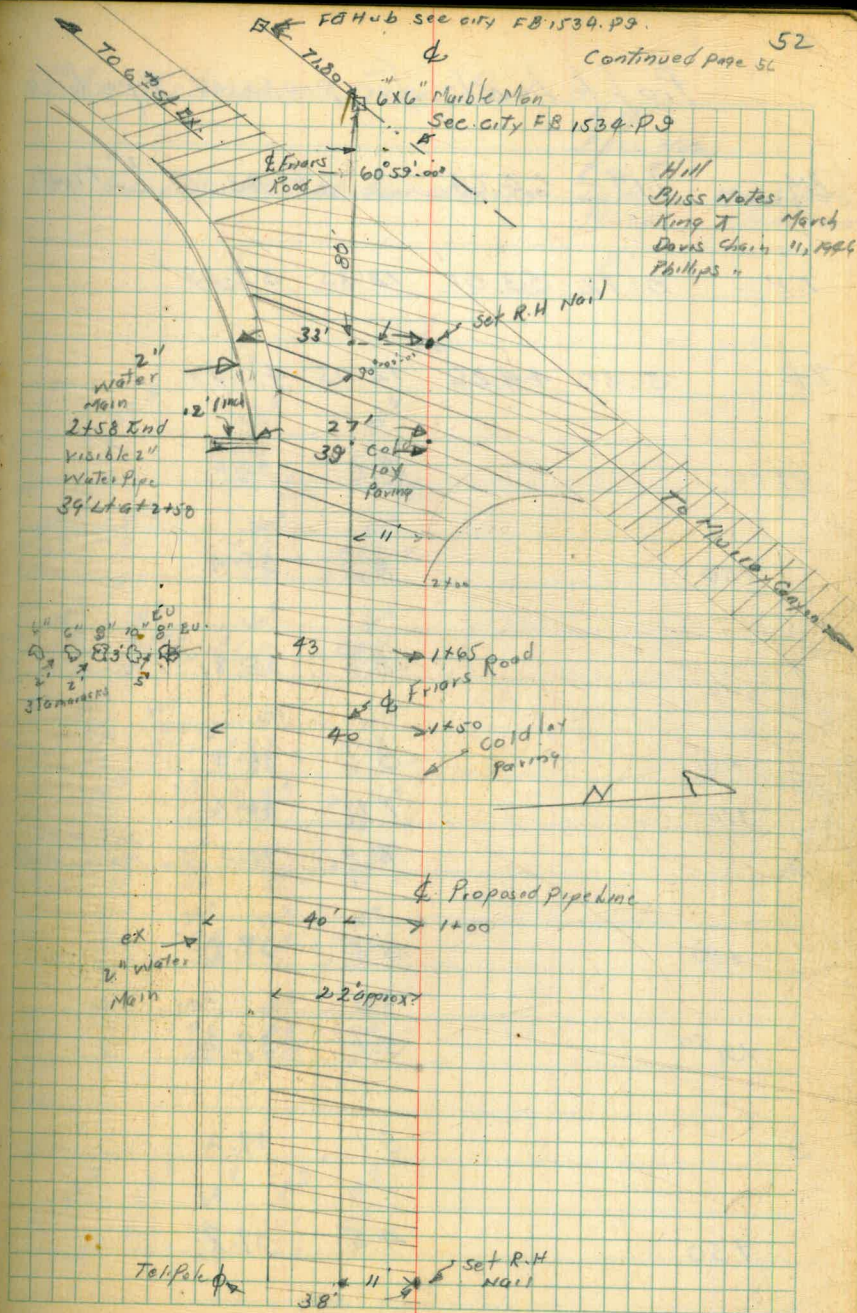 52
Fd Hub see city FB 1534. P9.
Continued page
71.80
℄
6x6" Marble Mon
See city FB 1534. P9
TO 6th St Ex.
℄ Friars
Road
60°59'.00"
Hill
Bliss Notes
King ⊼ March
Davis Chain 11, 1946
Phillips "
80'
33'
Set R.H Nail
90°00'.00"
2"
Water
Main
2+58 End
visible 2"
Water Pipe
39' Lt at 2+58
27'
39'
Cold
lay
Paving
11'
To Murray Canyon
2+00
EU
6" 8" 10" 8" EU.
2' 2' 3' 5'
3 Tamaracks
43
1+65
℄ Friars Road
40
1+50
Cold lay
paving
N
℄ Proposed Pipe Line
40'
1+00
ex
2" Water
Main
22' approx?
Tel. Pole
11'
38'
set R.H
Nail